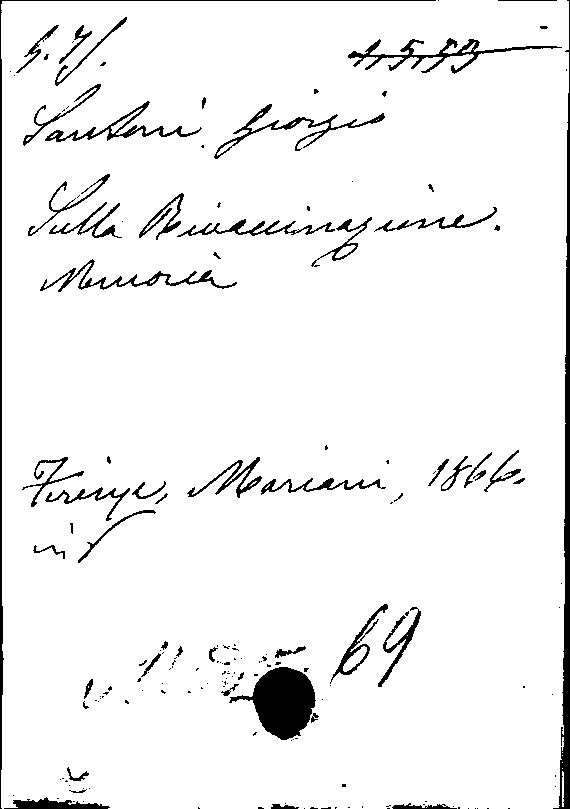 Santoni Giorgio
Sulla Rivaccinazione.
Memoria
Firenze, Mariani, 1866.
in 8
69